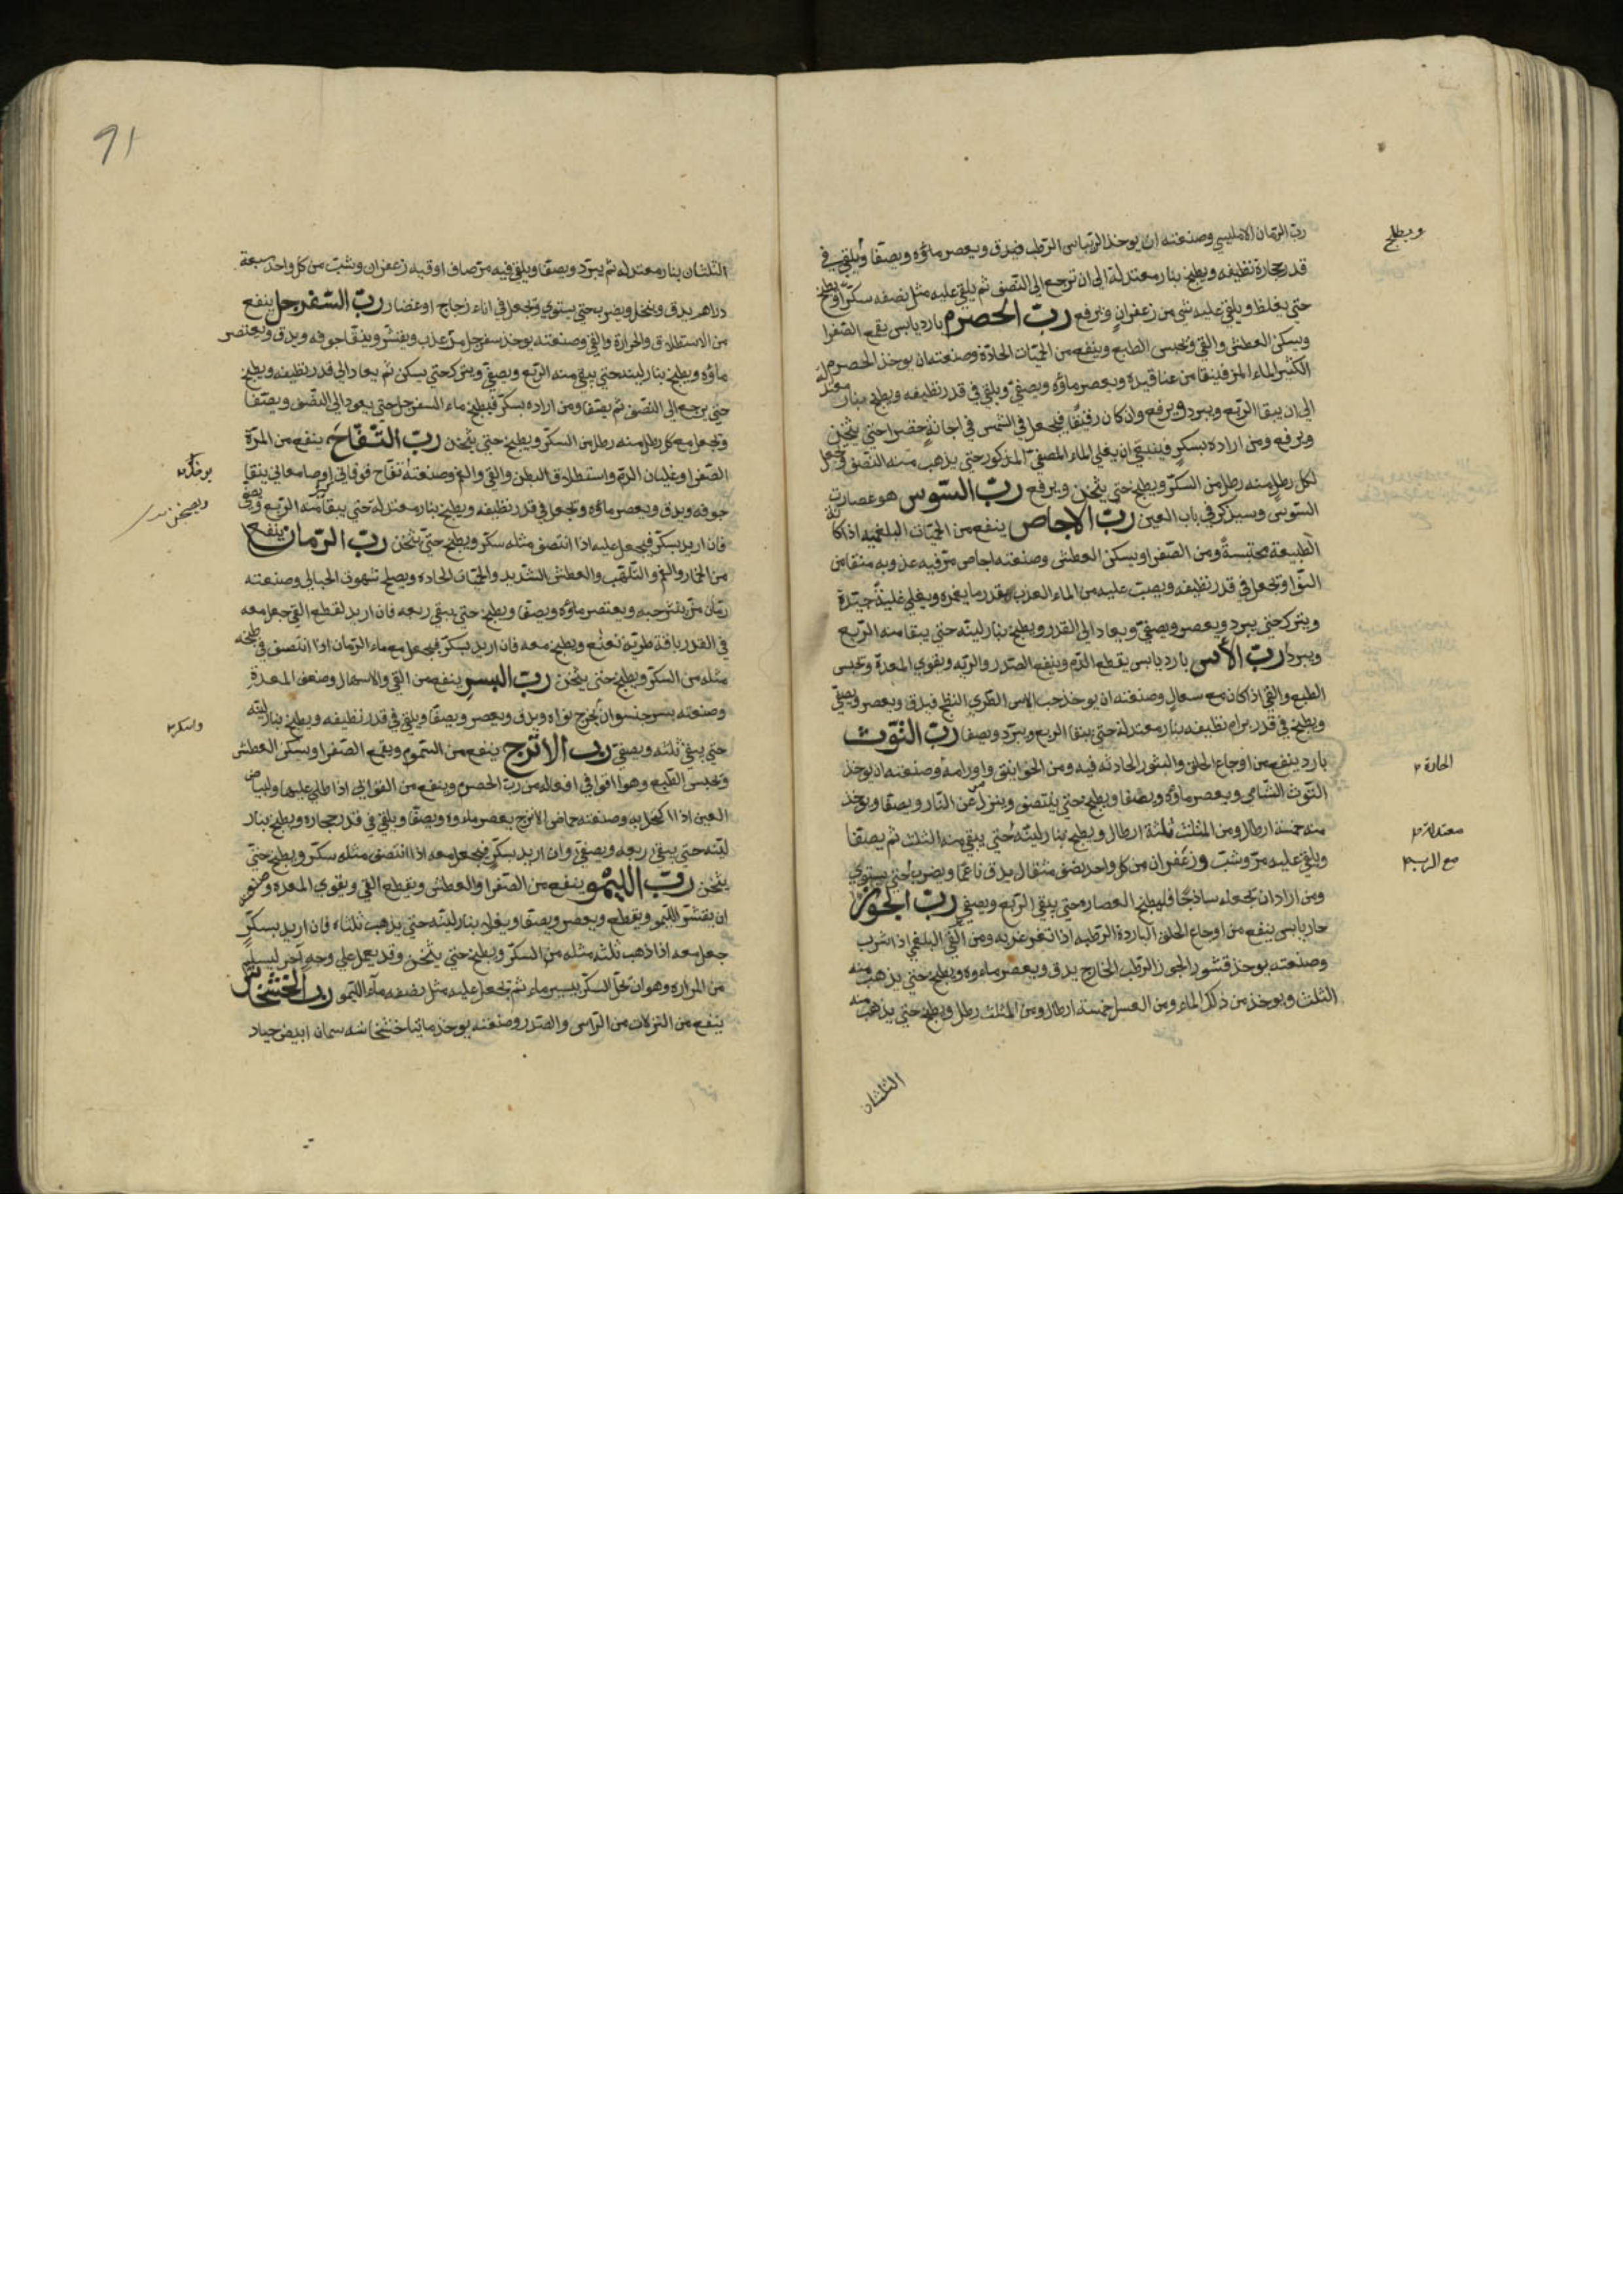 رب الرمان الامليسي وصنعته ان يوخذ الريباس الرطب فيدق ويعصر ماؤه ويصفا ويلقي في
قدر حجارة نظيفه ويطبخ بنار معتدلة الي ان ترجع الي النصف ثم يلقي عليه مثل نصفه سكرا ويطبخ
حتي يغلظ ويلقي عليه شي من زعفران ويرفع رب الحصرم بارد يابس يقمع الصفرا
ويسكن العطش والقي ويحبس الطبع وينفع من الحميات الحادة وصنعته ان يوخذ الحصرم
الكثير الماء المز فينقا من عناقيده ويعصر ماؤه ويصفي ويلقي في قدر نظيفه ويطبخ بنار معتدلة
الي ان يبقا الربع ويبرد ويرفع وان كان رقيقا فيجعل في الشمس في اجانة خضرا حتي يثخن
ويرفع ومن اراده بسكر فينبغي ان يغلي الماء المصفي المذكور حتي يذهب منه النصف ويجعل
لكل رطل منه رطل من السكر ويطبخ حتي يثخن ويرفع رب السوس هو عصارت
السوس وسيذكر في باب العين رب الاجاص ينفع من الحميات البلغميه اذا كانة
الطبيعة محتبسة ومن الصفرا ويسكن العطش وصنعته اجاص مز فيه عذوبه منقا من
النوا ويجعل في قدر نظيفه ويصب عليه من الماء العذب بقدر ما يغمره ويغلي غلية جيدة
ويترك حتي يبرد ويعصر ويصفي ويعاد الي القدر ويطبخ بنار لينه حتي يبقا منه الربع
ويبرد رب الآس بارد يابس يقطع الدم وينفع الصدر والريه ويقوي المعدة ويحبس
الطبع والقي اذا كان مع سعال وصنعته ان يوخذ حب الاس الطري النظج فيدق ويعصر ويصفي
ويطبخ في قدر برام نظيفه بنار معتدلة حتي يبقا الربع ويبرد ويصفا رب التوت
بارد ينفع من اوجاع الحلق والبثور الحادثه فيه ومن الخوانيق واورامه وصنعته ان يوخذ
التوت الشامي ويعصر ماؤه ويصفا ويطبخ حتي ينتصف وينزل عن النار ويصفا ويوخذ
منه خمسة ارطال ومن المثلث ثلثة ارطال ويطبخ بنار لينه حتي يبقي منه الثلث ثم يصفا
ويلقي عليه مر وشب وزعفران من كل واحد نصف مثقال يدق ناعما ويضرب حتي يستوي
ومن اراد ان يجعله ساذجا فليطبخ العصاره حتي يبقي الربع ويصفي رب الجوز
حار يابس ينفع من اوجاع الحلق الباردة الرطبه اذا تغرغر به ومن القي البلغمي اذا شرب
وصنعته يوخذ قشور الجوز الرطب الخارج يدق ويعصر ماءوه ويطبخ حتي يذهب منه
الثلث ويوخذ من ذلك الماء ومن العسل خمسة ارطال ومن المثلث رطل ويطبخ حتي يذهب منه
الثلثان
ويطبخ
الحادة
معتدلة
91
الثلثان بنار معتدله ثم يبرد ويصفا ويلقي فيه مر صاف اوقيه زعفران وشب من كل واحد سبعة
دراهم يدق وينخل ويضرب حتي يستوي ويجعل في اناء زجاج او غضار رب السفرجل ينفع
من الاستطلاق والحرارة والقي وصنعته يوخذ سفرجل مز عذب ويقشر وينقا جوفه ويدق ويعتصر
ماؤه ويطبخ بنار لينه حتي يبقي منه الربع ويصفي ويترك حتي يسكن ثم يعاد الي قدر نظيفه ويطبخ
حتي يرجع الي النصف ثم يصفا ومن اراده بسكر فيطبخ ماء السفرجل حتي يعود الي النصف ويصفا
ويجعل مع كل رطل منه رطل من السكر ويطبخ حتي يثخن رب التفاح ينفع من المرة
الصفرا وغليان الدم واستطلاق البطن والقي والغم وصنعته تفاح فوقاني اوصامعاني ينقا
جوفه ويدق ويعصر ماؤه ويجعل في قدر نظيفه ويطبخ بنار معتدلة حتي يبقا منه الربع ويصفي
فان اريد بسكر فيجعل عليه اذا انتصف مثله سكر ويطبخ حتي يثخن رب الرمان ينفع
من الخمار والغم والتلهب والعطش الشديد والحميات الحاده ويصلح شهوت الحبالي وصنعته
رمان مز ينثر حبه ويعتصر ماؤه ويصفا ويطبخ حتي يبقي ربعه فان اريد لقطع القي جعل معه
في القدر باقة طرية نعنع ويطبخ معه فان اريد بسكر فيجعل مع ماء الرمان اذا انتصف في طبخه
مثله من السكر ويطبخ حتي يثخن رب البسر ينفع من القي والاسهال وضعف المعدة
وصنعته بسر جنسوان يخرج نواه ويدق ويعصر ويصفا ويلقي في قدر نظيفه ويطبخ بنار لينه
حتي يبقي ثلثه ويصفي رب الاترج ينفع من السموم ويقمع الصفرا ويسكن العطش
ويحبس الطبع وهو اقوا في افعاله من رب الحصرم وينفع من القوابي اذا طلي عليها ولبياض
العين اذا اكتحل به وصنعته حماض الاترج يعصر ماءوه ويصفا ويلقي في قدر حجاره ويطبخ بنار
لينه حتي يبقي ربعه ويصفي وان اريد بسكر فيجعل معه اذا انتصف مثله سكر ويطبخ حتي
يثخن رب الليمو ينفع من الصفرا والعطش ويقطع القي ويقوي المعده وصنعته
ان يقشر الليمو ويقطع ويعصر ويصفا ويغلي بنار لينه حتي يذهب ثلثاه فان اريد بسكر
جعل معه اذا ذهب ثلثه مثله من السكر ويطبخ حتي يثخن وقد يعمل علي وجه آخر ليسلم
من المراره وهو ان تحل السكر بيسير ماء ثم يجعل عليه مثل نصفه مآء الليمو رب الخشخاش
ينفع من النزلات من الراس والصدر وصنعته يوخذ مائتا خشخاشه سمان ابيض جياد